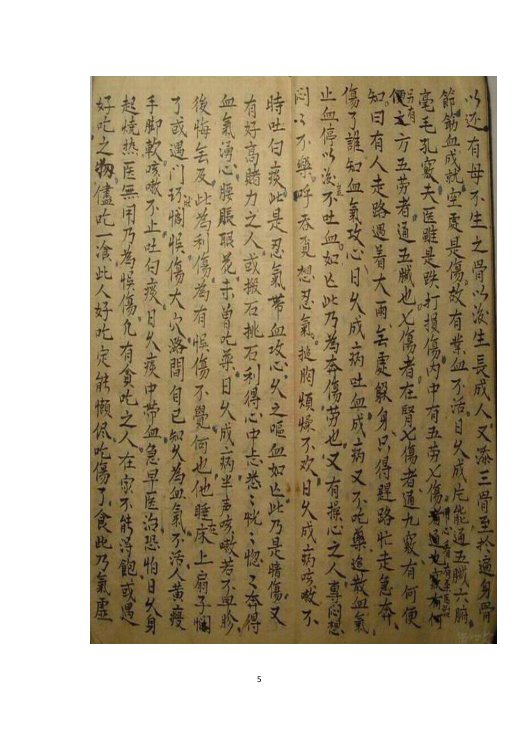 以还有母不生之骨以后生長成人又添三骨至於遍身骨
節筋血成就空處是傷故有業血不活日久成片能通五臟六腑
毫毛孔竅夫医雖是跌打損傷内中有五劳七傷
方五劳者通五臟也七傷者在腎七傷者通九竅有何便
知曰有人走路遇着大雨無處躱身只得趕路忙走急奔
傷了誰知血氣攻心日久成病吐血成病又不吃藥追散血氣
止血停以後不吐血如此乃為本傷劳也又有操心之人專悶想
悶々不樂呼吞夏想忍氣搥胸煩燥不欢日久成病咳嗽不
時吐白痰此是忍氣带血攻心久之嘔血如此乃是暗傷又
有好高賭力之人或搬石挑石利得心中志卷々恍々惚々奔得
血氣湧心腰脹眼花未曾吃药日久成病半声咳嗽若不血胗
後悔無及此為利傷為有悮傷不覺何也他睡床上扇子
了或遇門巧悮傷大穴路間自已知久為血氣不活人黄瘦
手脚軟咳嗽不止吐白痰日久痰中带血急早医治恐怕日久身
起焼热医無用乃為悮傷凡有貪吃之人在家不能得飽或遇
好吃之物儘吃一飡此人好吃定能懶侭吃傷了食此乃氣虚
5